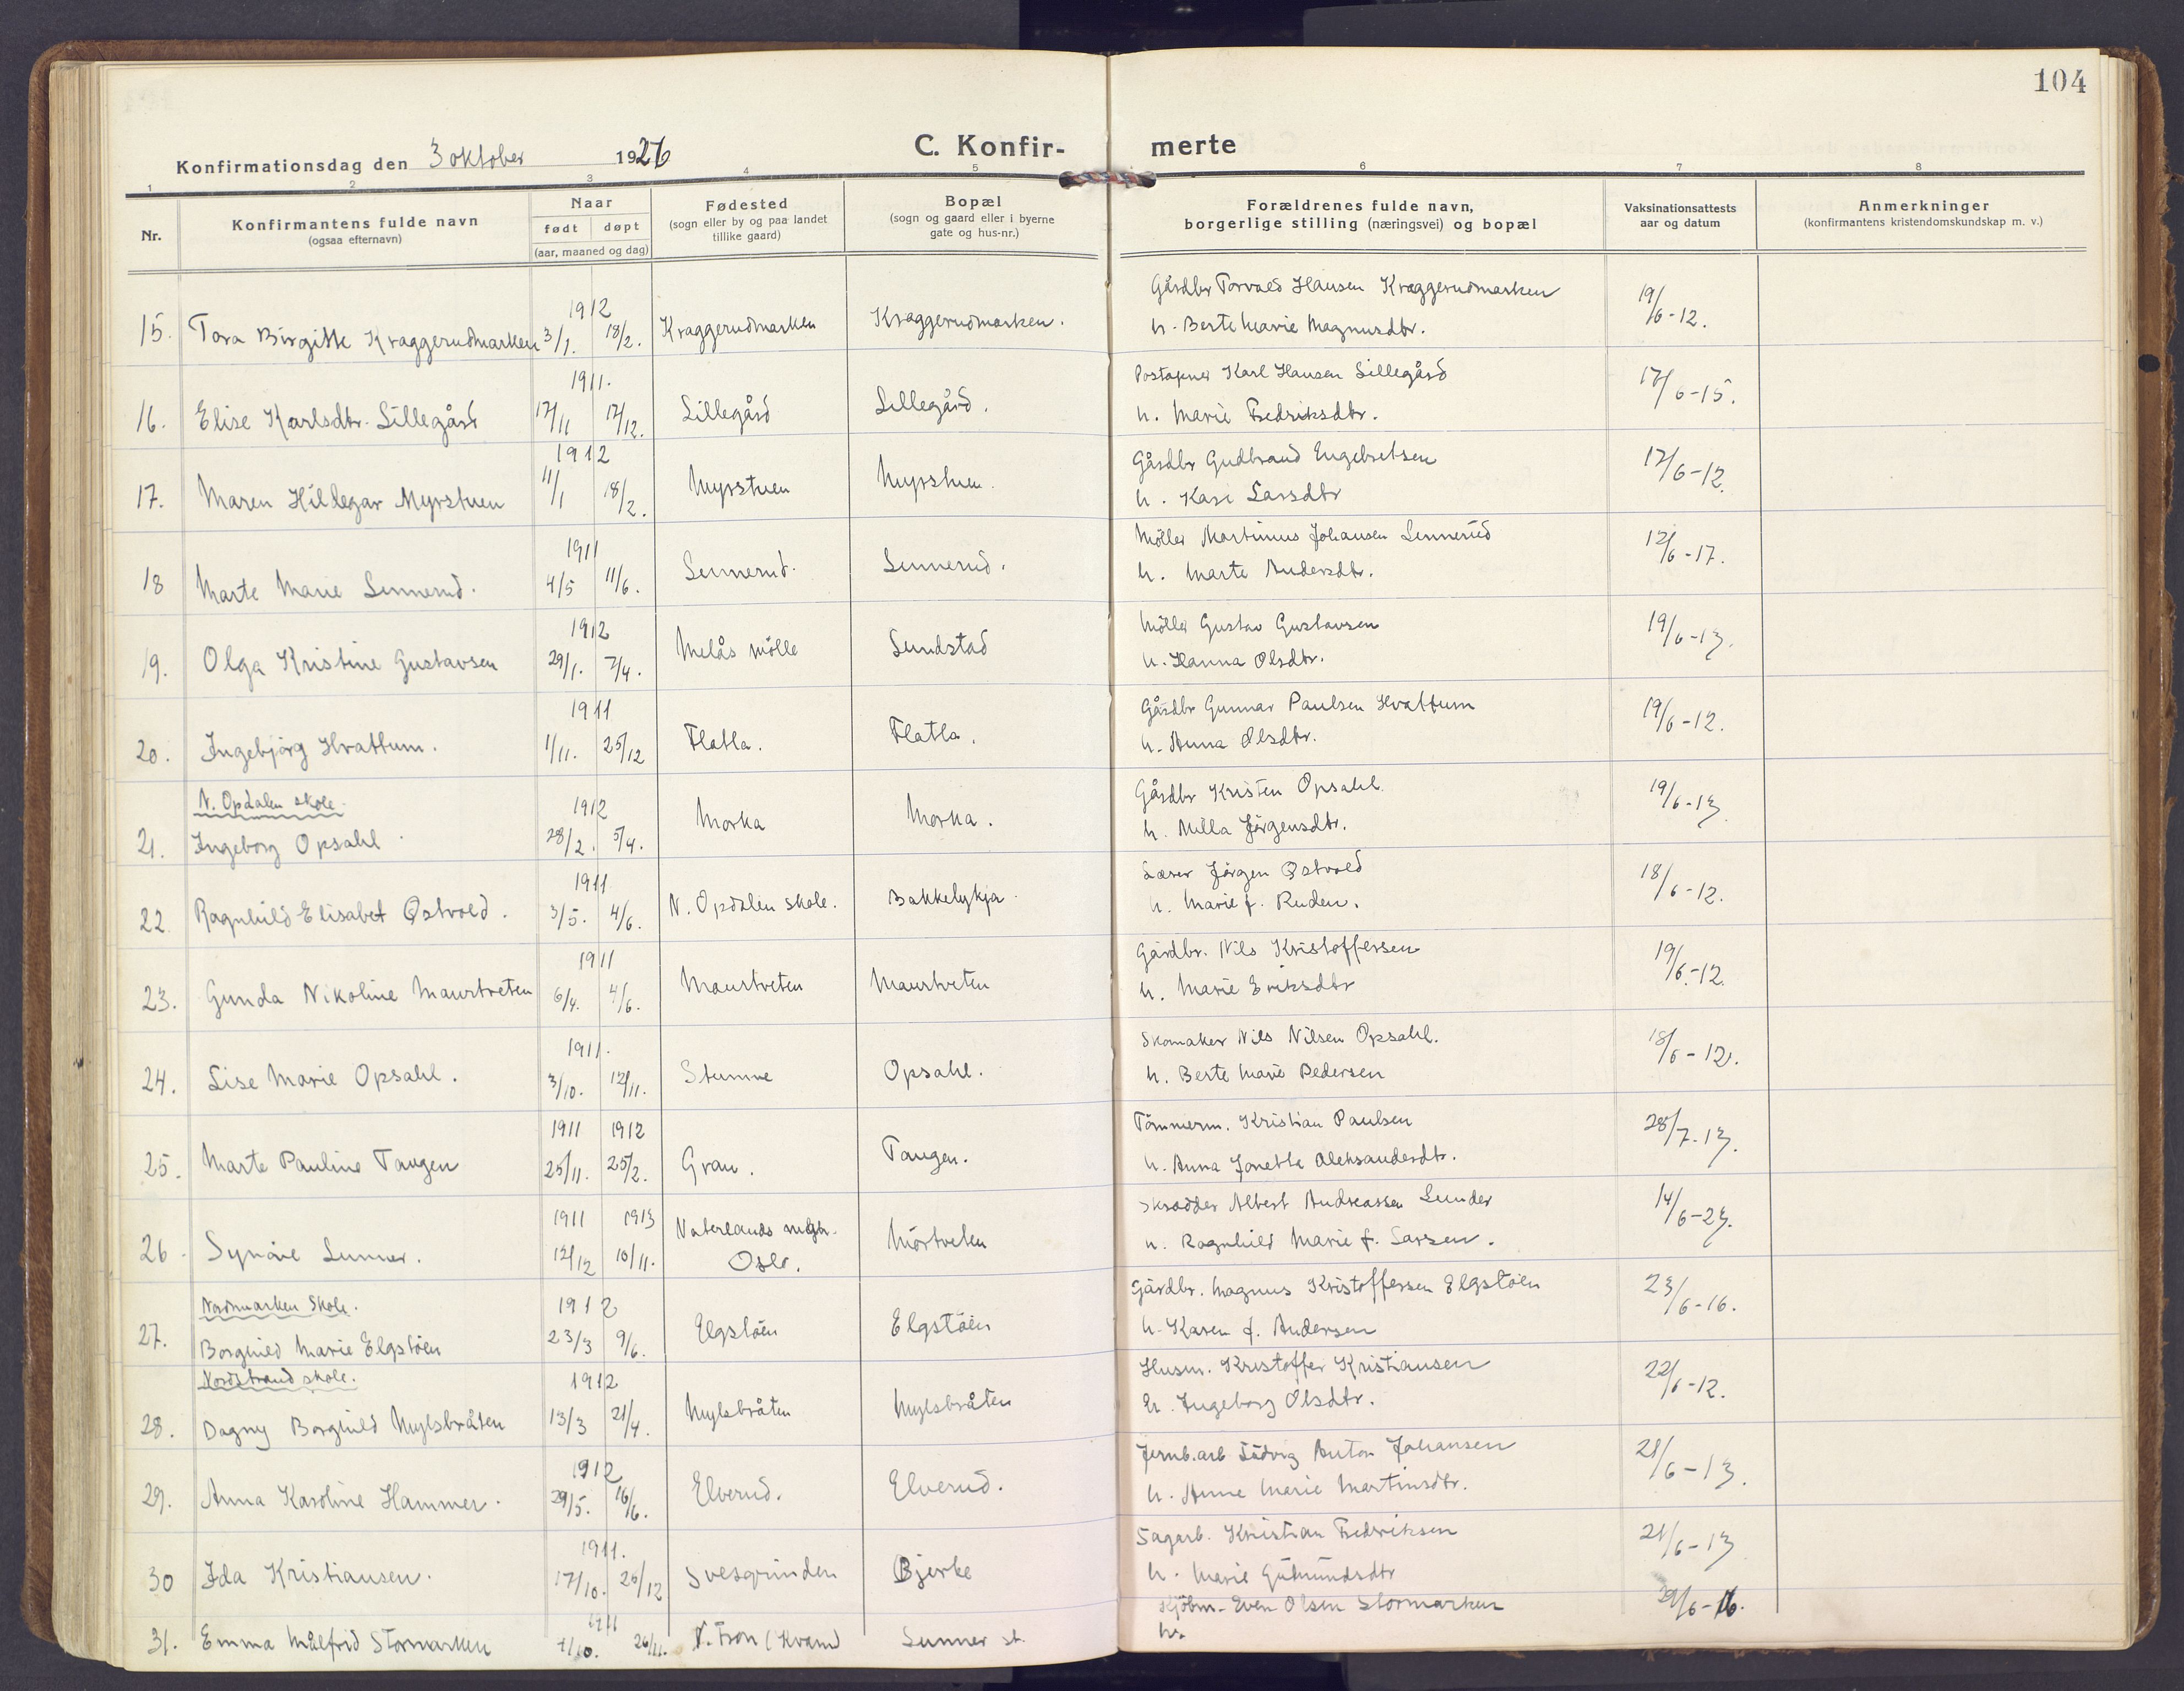 104
Konfirmationsdag den 3 oktober 1926
C. Konfirmerte
1 2 3 4 5 6 7 8
Nr.
Konfirmantens fulde navn
(ogsaa efternavn)
Naar
født døpt
(aar, maaned og dag)
Fødested
(sogn eller by og paa landet
tillike gaard)
Bopæl
(sogn og gaard eller i byerne
gate og hus-nr.)
Forældrenes fulde navn,
borgerlige stilling (næringsvei) og bopæl
Vaksinationsattests
aar og datum
Anmerkninger
(konfirmantens kristendomskundskap m. v.)
1912
15. Tora Birgitte Kraggerudmarken 3/1. 18/2. Kraggerudmarken Kraggerudmarken. Gårdbr Torvald Hansen Kraggerudmarken 19/6-12.
h. Berte Marie Magnusdtr.
1911.
16. Elise Karlsdtr. Lillegård 17/11 17/12. Lillegård Lillegård. Postapner Karl Hansen Lillegård 17/6-15.
h. Marie Fredriksdtr.
1912
17. Maren Hildegar Myrstuen 11/1 18/2. Myrstuen Myrstuen. Gårdbr Gudbrand Engebretsen 17/6-12.
h. Kari Larsdtr
1911
18 Marte Marie Linnerud. 4/5 11/6. Linnerud. Linnerud. Möller Martinius Johansen Linnerud 12/6-17.
h. Marte Andersdtr.
1912
19. Olga Kristine Gustavsen 29/1. 7/4. Melås mölle Sundstad Möller Gustav Gustavsen 19/6-13.
h. Hanna Olsdtr.
1911
20. Ingebjörg Hvattum. 1/11. 25/12 Flatla. Flatla. Gårdbr Gunnar Paulsen Hvattum 19/6-12.
h. Anna Olsdtr.
N. Opdalen skole.
1912
21. Ingeborg Opsahl 28/2. 5/4. Morka Morka. Gårdbr Kristen Opsahl. 19/6-13
h. Milla Jörgensdtr.
1911
22. Ragnhild Elisabet Østvold. 3/5. 4/6. N. Opdalen skole. Bakkelykja Lærer Jörgen Østvold 18/6-12.
h. Marie f. Ruden.
1911
23. Gunda Nikoline Maurtveten 6/4. 4/6. Maurtveten Maurtveten Gårdbr. Nils Kristoffersen 19/6.-12.
h. Marie Eriksdtr
1911.
24. Lise Marie Opsahl. 3/10. 12/11. Stumne Opsahl. Skomaker Nils Nilsen Opsahl. 18/6-12.
h. Berte Marie Pedersen
1911 1912
25. Marte Pauline Tangen 25/11. 25/2. Gran. Tangen. Tömmerm. Kristian Paulsen 28/7-13.
h. Anna Jonetta Aleksandersdtr.
1911 1913
26. Synöve Lunner. 12/12 10/11. Vaterlands mgh. Oslo. Mörtveten Skrädder Albert Andreassen Lunder 14/6-23.
h. Ragnhild Marie f. Larsen.
Nordmarken Skole.
1912
27. Borghild Marie Elgstöen 23/3 9/6. Elgstöen Elgstöen Gårdbr. Magnus Kristoffersen Elgstöen 23/6-16.
h. Karen f. Andersen
Nordstrand skole.
1912
28. Dagny Borghild Mylsbråten 13/3 21/4. Mylsbråten Mylsbråten Husm. Kristoffer Kristiansen 22/6-12.
h. Ingeborg Olsdtr.
1912
29. Anna Karoline Hammer. 29/5. 16/6. Elverud. Elverud. Jernb.arb Ludvig Anton Johansen 21/6-13.
h. Anne Marie Martinsdtr.
1911.
30 Ida Kristiansen. 17/10. 26/12 Svesgrinden Bjerke Sagarb. Kristian Fredriksen 21/6-13
h. Marie Gulmundsdtr
1911
31. Emma Målfrid Stormarken 1/10. 26/11. N. Fron (Kvam) Lunner st. Kjöbm. Even Olsen Stormarken 29/6-16.
h.